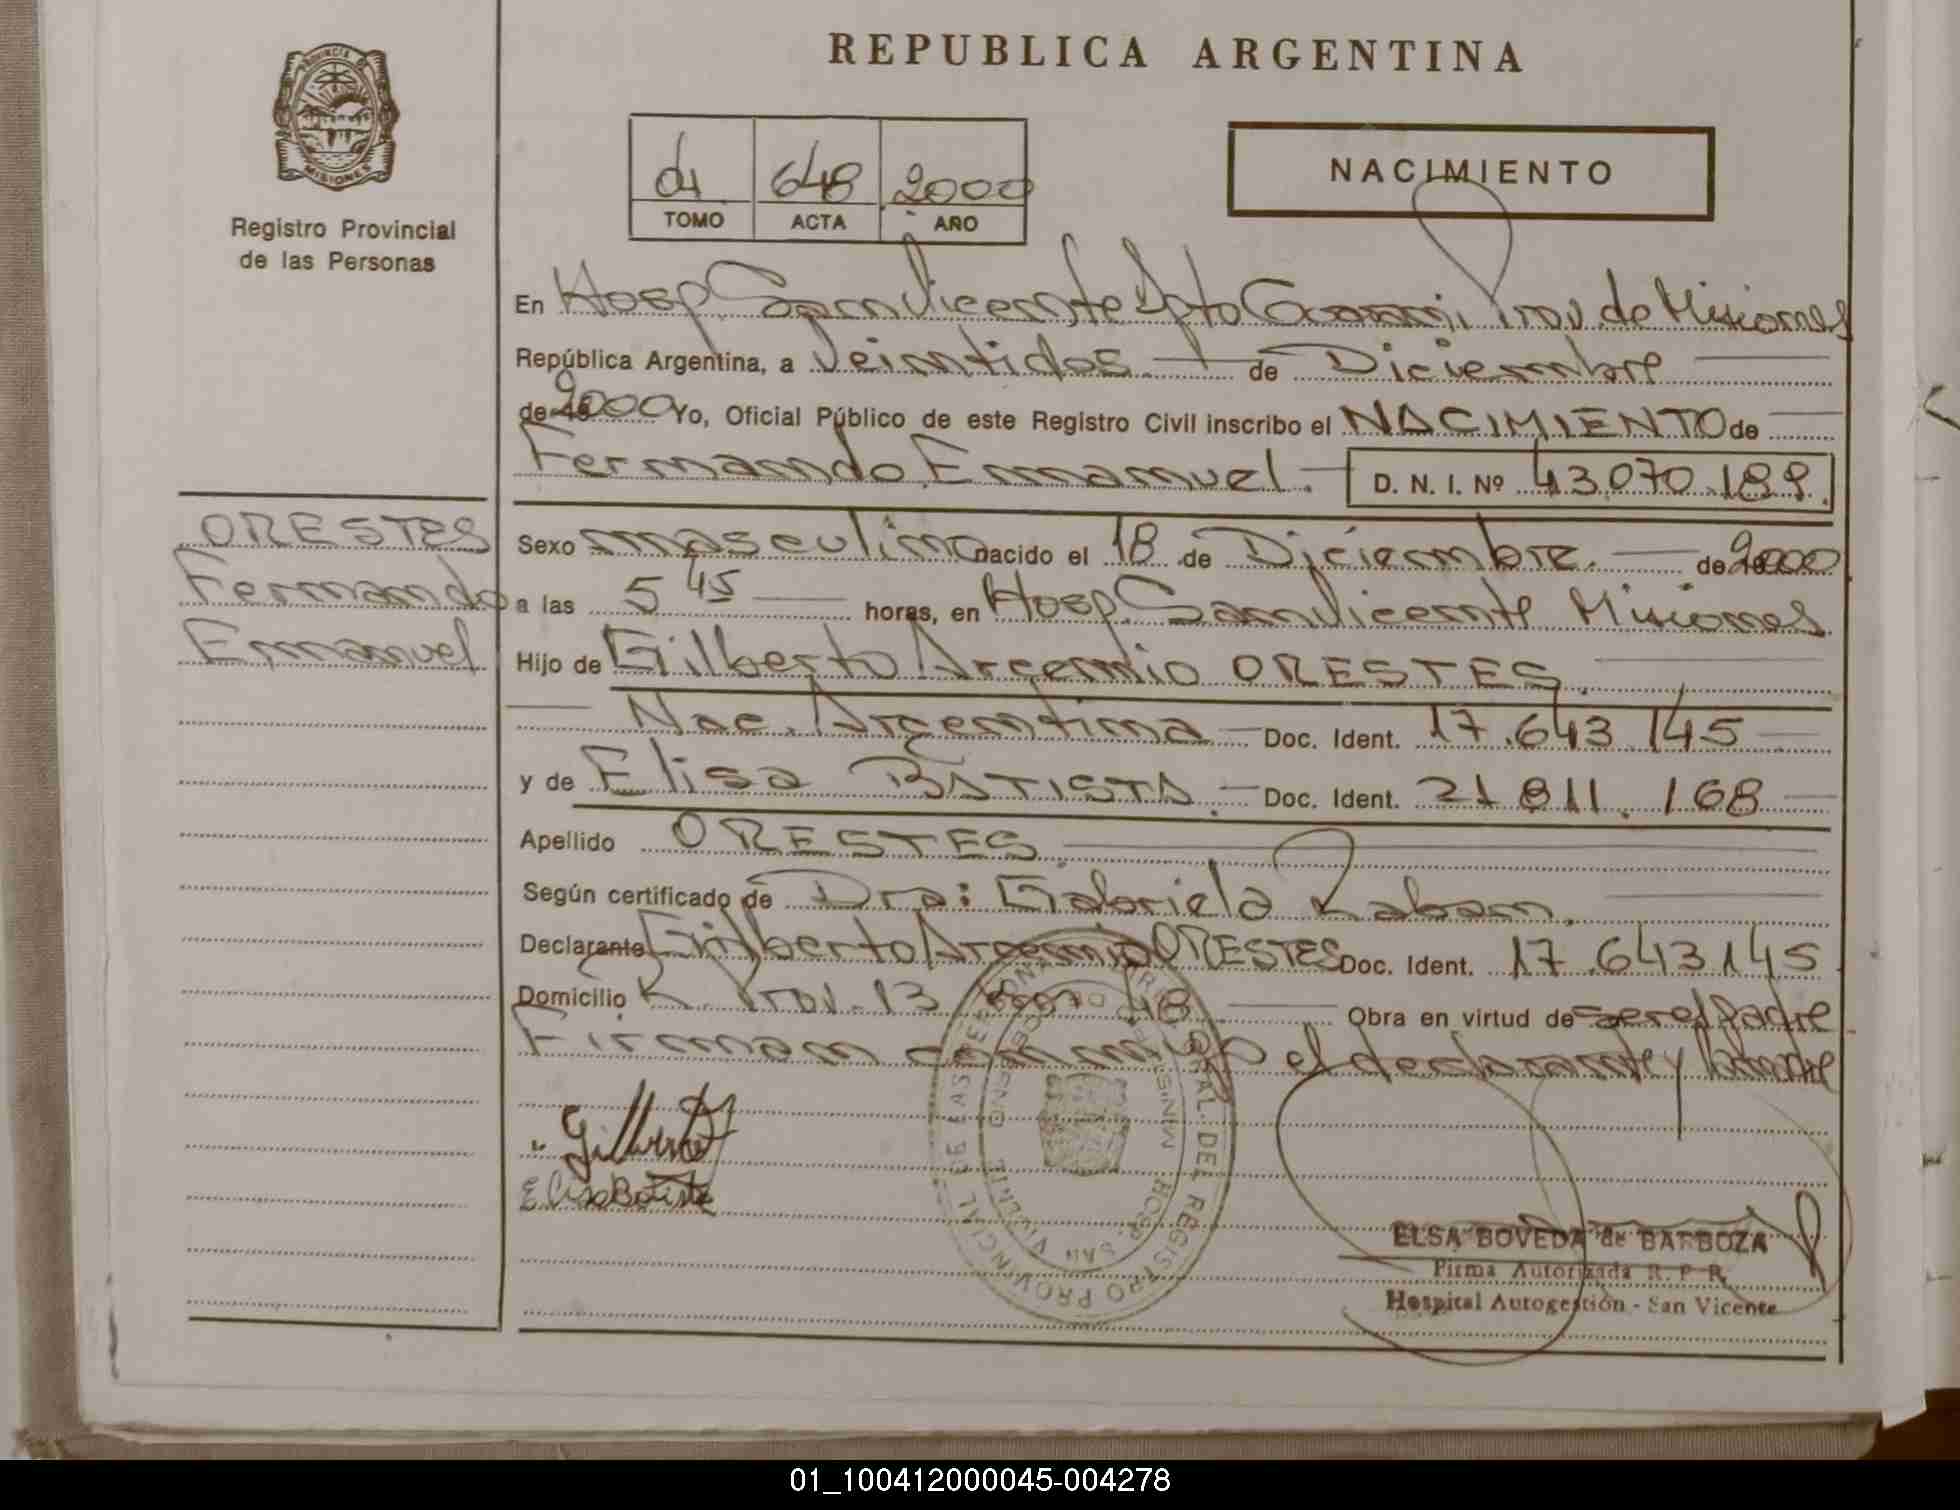 REPUBLICA ARGENTINA
PROVINCIA DE MISIONES
Registro Provincial
de las Personas
648 2000
TOMO ACTA AÑO
NACIMIENTO
En Hosp. San Vicente Dpto Guarani, Prov. de Misiones
República Argentina, a Veintidos de Diciembre
de 19 2000 Yo, Oficial Público de este Registro Civil inscribo el NACIMIENTO de
Fernando Emanuel. D. N. I. Nº 43.070.189.
ORESTES
Fernando
Emanuel
Sexo masculino nacido el 18 de Diciembre. de 2000
a las 5 45 horas, en Hosp. San Vicente Misiones
Hijo de Gilberto Argemio ORESTES.
Nac. Argentina Doc. Ident. 17.643.145
y de Elisa BATISTA. Doc. Ident. 21.811.168
Apellido ORESTES.
Según certificado de Dra: Gabriela
Declarante Gilberto Argemio ORESTES Doc. Ident. 17.643.145
Domicilio R. Prov. 13 48 Obra en virtud de ser el padre
Firman conmigo el declarante y la madre
Elisa Batista
REGISTRO PROVINCIAL DE LAS PERSONAS
HOSP. SAN VICENTE
ELSA BOVEDA de BARBOZA
Firma Autorizada R. P. R.
Hospital Autogestión - San Vicente
01_100412000045-004278